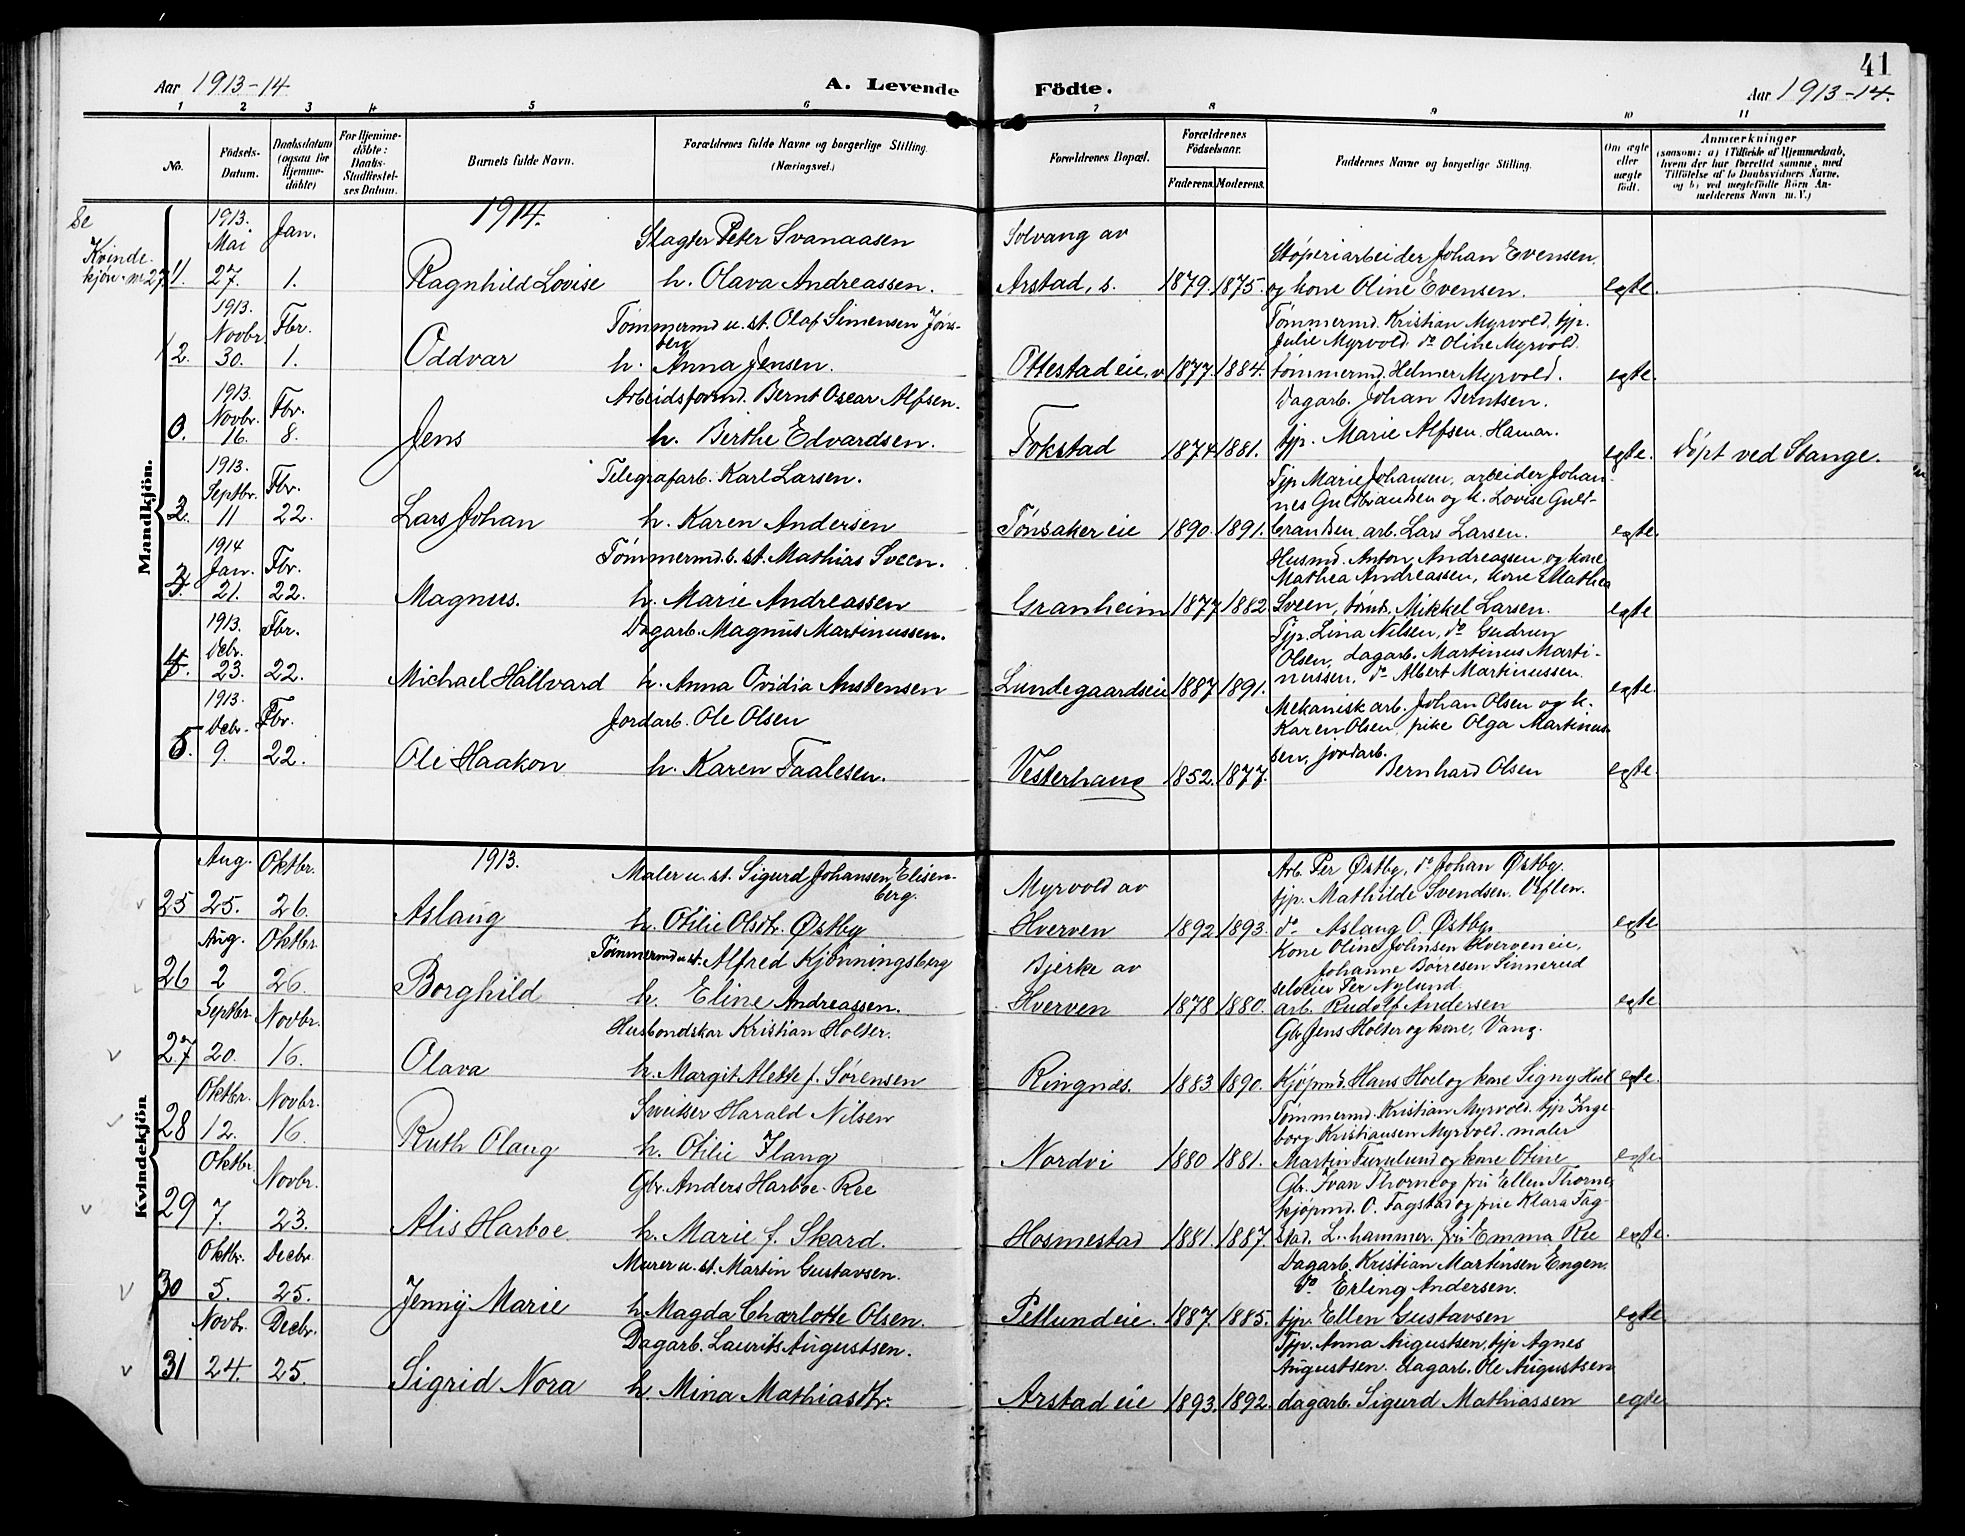 41
Aar 1913-14 A. Levende Födte. Aar 1913-14.
1 2 3 4 5 6 7 8 9 10 11
No.
Födsels-Datum.
Daabsdatum (ogsaa for Hjemme-döbte)
For Hjemme-döbte: Daabs-Stadfæstel-ses Datum.
Barnets fulde Navn.
Forældrenes fulde Navne og borgerlige Stilling.
(Næringsvei.)
Forældrenes Bopæl.
Forældrenes Födselsaar.
Faderens. Moderens.
Faddernes Navne og borgerlige Stilling.
Om ægte eller uægte födt.
Anmærkninger
(saasom: a) i Tilfælde af Hjemmedaab, hvem der har forrettet samme, med Tilföielse af to Daabsvidners Navne, og b) ved uægtefödte Börn Anmelderens Navn m. V.)
Mandkjön.
1914.
Se Kvinde-kjön nr 27.
1. 1913. Mai 27. Jan. 1. Ragnhild Lovise Slagter Peter Svanaasen h. Olava Andreassen. Solvang av Arstad, s. 1879. 1875. Støperiarbeider Johan Evensen og kone Oline Evensen. egte.
2. 1913. Novbr 30. Fbr. 1. Oddvar Tømmermd u. st. Olaf Simensen Jønsberg h. Anna Jensen. Ottestad eie, v 1877. 1884. Tømmermd. Kristian Myrvold, tjp. Julie Myrvold. do Oline Myrvold. tømmermd. Helmer Myrvold. egte.
0. 1913. Novbr. 16. Fbr. 8. Jens Arbeidsformd. Bernt Oscar Alfsen. h. Berthe Edvardsen. Fokstad 1874 1881. Dagarb. Johan Berntsen. tjp. Marie Alfsen. Hamar. egte. Döpt ved Stange.
2. 1913. Septbr. 11 Fbr. 22. Lars Johan Telegrafarb. Karl Larsen. h. Karen Andersen Tønsaker eie 1890. 1891. Tjp Marie Johansen, arbeider Johannes Guldbrandsen og k. Lovise Guldbrandsen, arb. Lars Larsen. egte.
3. 1914 Jan. 21. Fbr. 22. Magnus. Tømmermd. s. st. Mathias Sveen. h. Marie Andreassen Granheim 1877 1882. Husmd. Anton Andreassen og kone Mathea Andreassen, kone Mathea Sveen, Mikkel Larsen. egte
4. 1913. Debr. 23. Fbr. 22. Michael Hallvard Dagarb. Magnus Martinussen. h. Anna Ovidia Anstensen Lundegaardseie 1887 1891. Tjp. Lina Nilsen, do Gudrun Olsen, dagarb. Martinus Martinussen. do Albert Martinussen. egte.
5. 1913. Debr. 9. Fbr. 22. Ole Haakon Jordarb. Ole Olsen h. Karen Taalesen. Vesterhaug 1852. 1877. Mekanisk arb. Johan Olsen og k. Karen Olsen, pike Olga Martinussen, jordarb. Bernhard Olsen egte.
Kvindekjön
1913.
25 Aug. 25. Oktbr. 26. Aslaug Maler u. st. Sigurd Johansen Elisenberg. h. Otilie Olsdtr. Østby Myrvold av Hverven 1892 1893. Arb. Per Østby, do Johan Østby. tjp. Mathilde Svendsen. do Aslaug O. Østby. egte
26 Aug. 2 Oktbr. 26. Borghild Tømmermd u. st. Alfred Kjønningsberg h. Eline Andreassen. Bjerke av Hverven 1878 1880. Kone Oline Johnsen Hverven eie, Johanne Børresen Sinnerud selveier Per Nylund. arb. Rudolf Andersen egte
27 Septbr. 20. Novbr. 16. Olava Husbondskar Kristian Holter. h. Margit Alette f. Sørensen Ringnæs. 1883 1890. Gbr Jens Holter og kone, Vang. Kjøpmd. Hans Hoel og kone Signy Hoel egte.
28 Oktbr. 12. Novbr. 16. Ruth Olaug Sveitser Harald Nilsen h. Otilie Ilang Nordvi 1880 1881. Tømmermd. Kristian Myrvold. tjp Ingeborg Kristiansen Myrvold. maler Martin Furulund og kone Otine egte
29 Oktbr. 7. Novbr. 23. Alis Harboe Gbr. Anders Harboe-Ree h. Marie f. Skard. Hosmestad 1881 1887. Gbr. Ivar Thorne og fru Ellen Thorne, kjøpmd. O. Fagstad og frue Klara Fagstad. L.hammer. fru Emma Ree egte.
30 Oktbr. 5. Decbr. 25. Jenny Marie Murer u. st. Martin Gustavsen. h. Magda Charlotte Olsen. Petlund eie. 1887. 1885. Dagarb. Kristian Martinsen Engen. do Erling Andersen. tjp. Ellen Gustavsen egte.
31 Novbr. 24. Decbr. 25. Sigrid Nora Dagarb. Laurits Augustsen. h. Mina Mathiasdtr. Arstad eie 1893. 1892. Tjp. Anna Augustsen, tjp Agnes Augustsen. dagarb. Ole Augustsen dagarb. Sigurd Mathiassen egte.